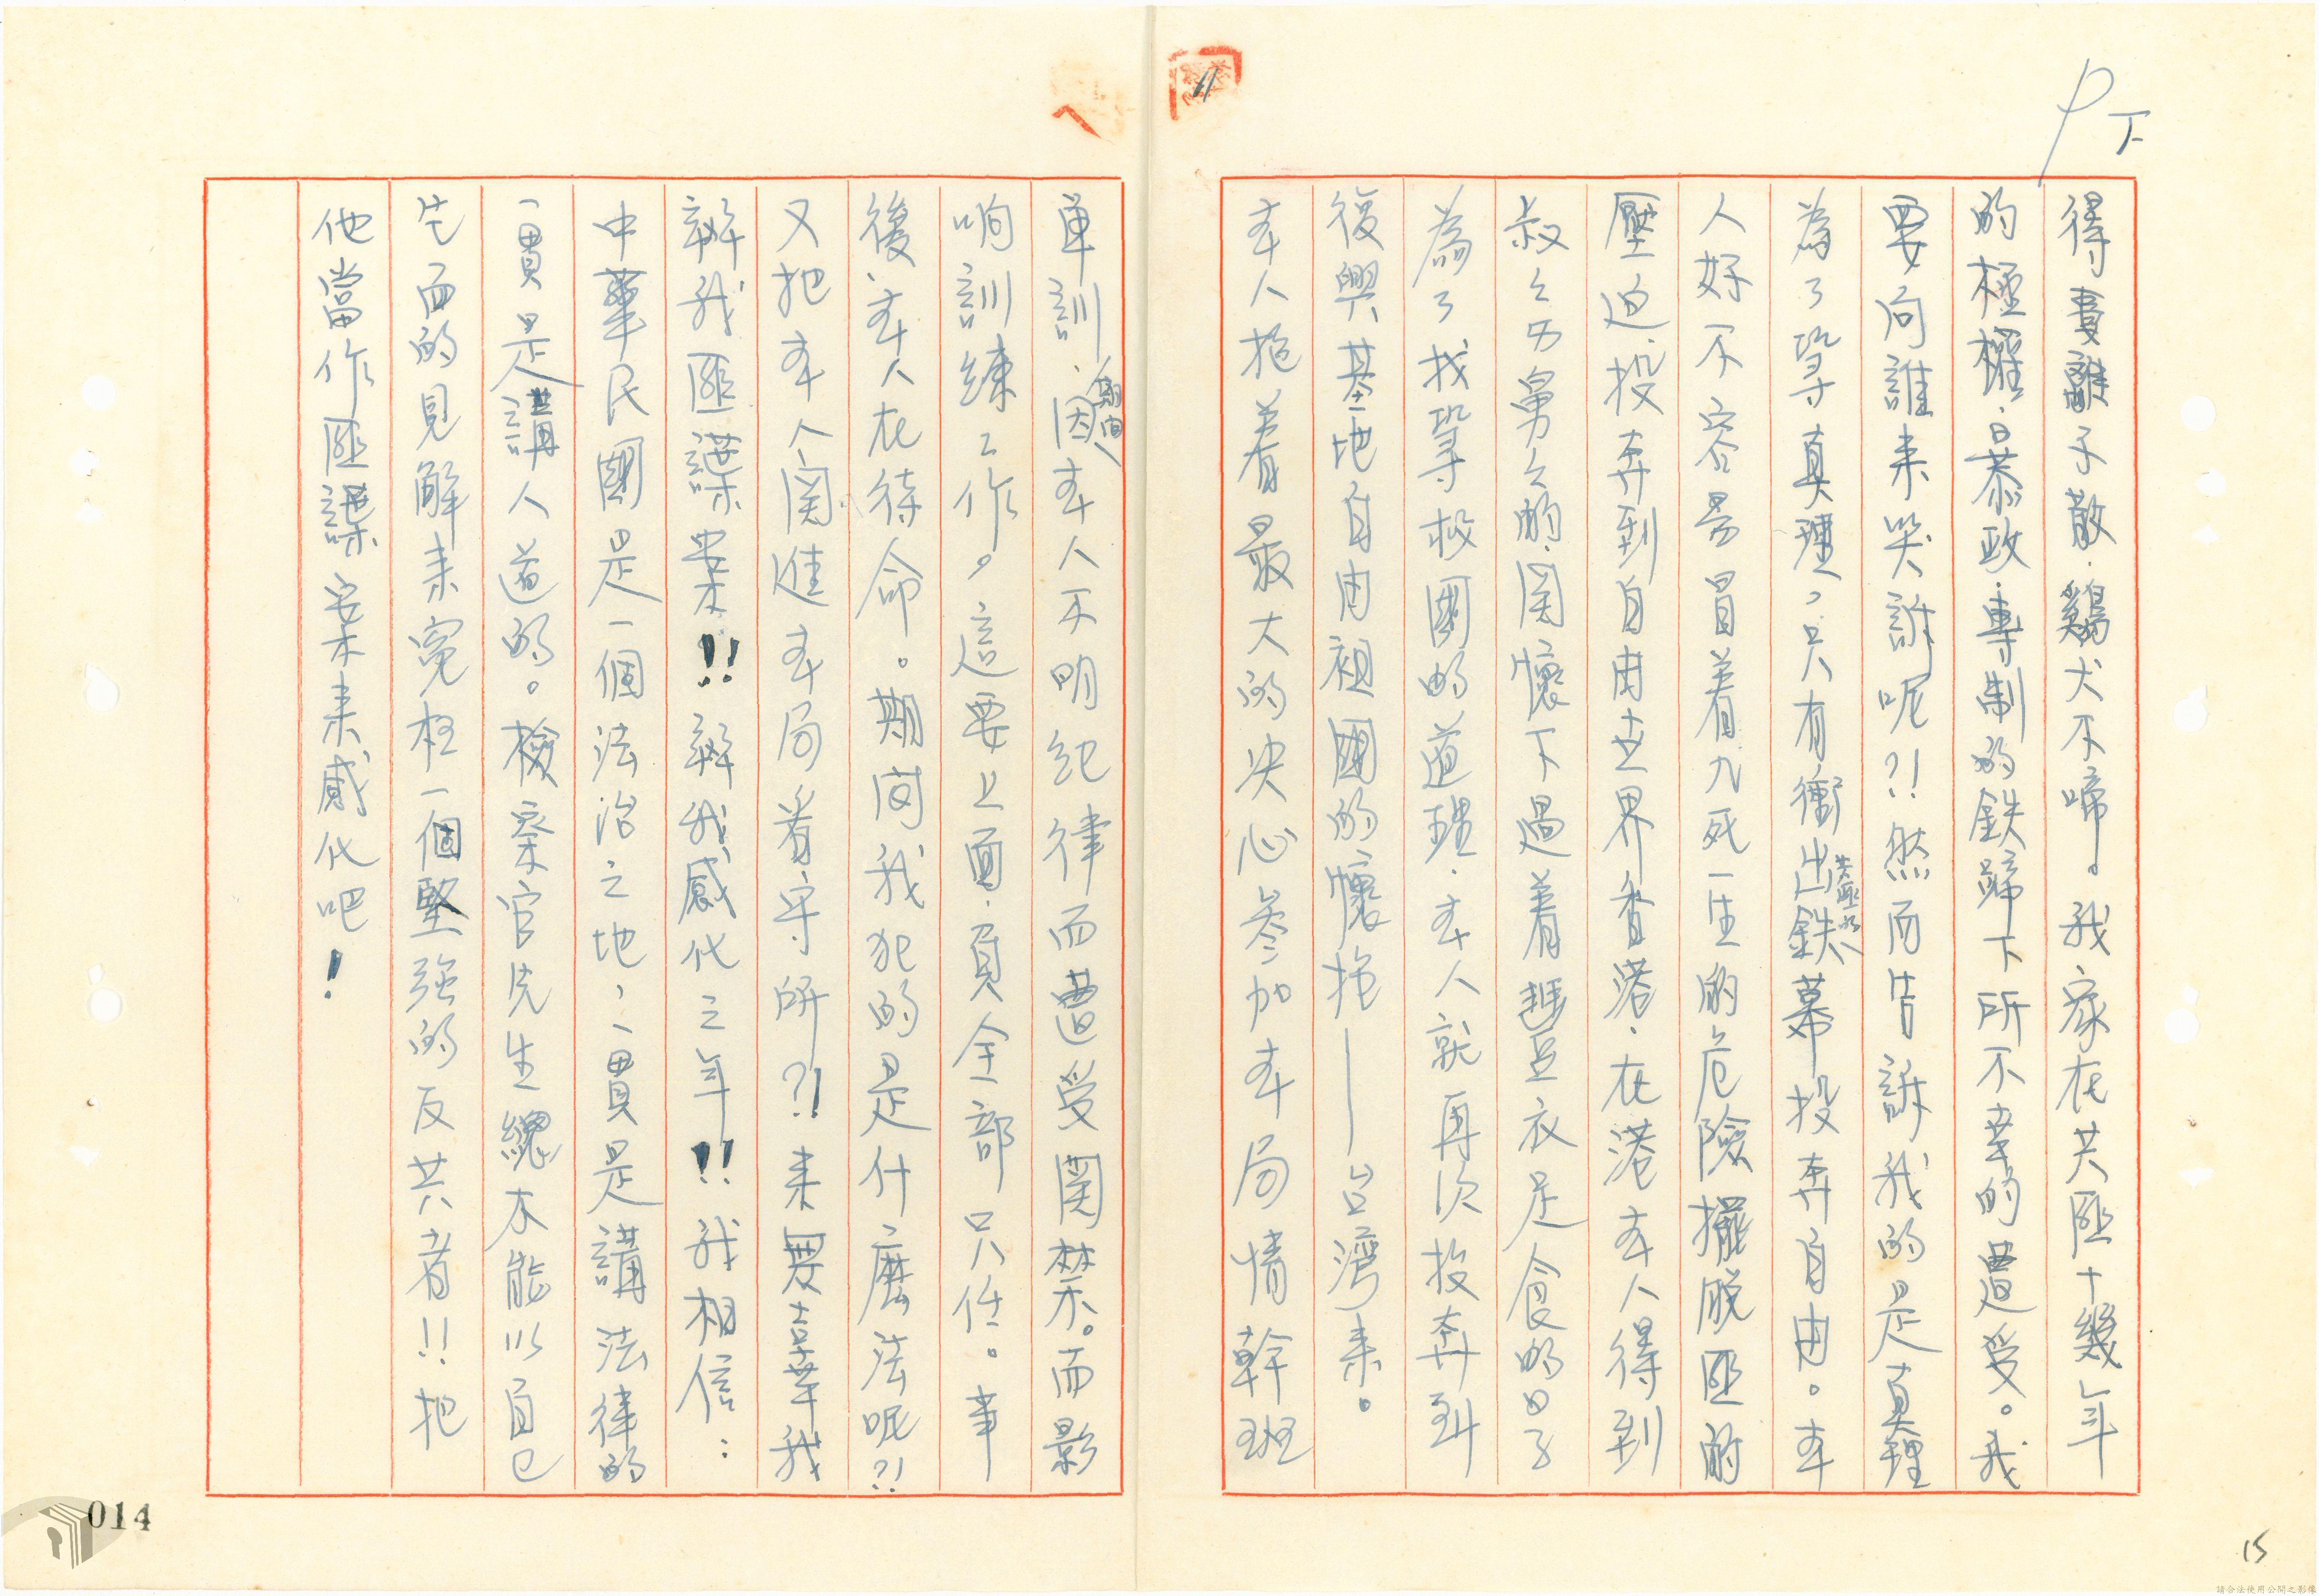 下
得妻離子散．鷄犬不啼。我家在共匪十幾年
的極權．暴政．專制的鉄蹄下所不幸的遭受。我
要向誰来哭訴呢?!然而告訴我的是真理
為了尋真理，只有衝出共匪的鉄幕投奔自由。本
人好不容易冒着九死一生的危險擺脫匪的
壓迫．投奔到自由世界香港．在港本人得到
叔々舅々的．関懷下過着趕豆衣足食的日子
為了找尋校國的道理．本人就再次投奔到
復興基地自由祖國的懷抱——台灣来。
本人抱着最大的决心参加本局情幹班
單訓．期间因本人不明紀律而遭受関禁。而影
响訓練工作。這要上面．負全部只任。事
後．本人在待命。期间我犯的是什麼法呢?!
又把本人関進本局看守所?!来裏喜葦我
辦我匪諜案!!辦我感化三年!!我相信：
中華民國是一個法治之地，一貫是講法律的
一貫是講人道的。檢察官先生總不能以自己
片面的見解来寃枉一個堅強的反共者!!把
他當作匪諜案来感化吧！
014
15
請合法使用公開之影像